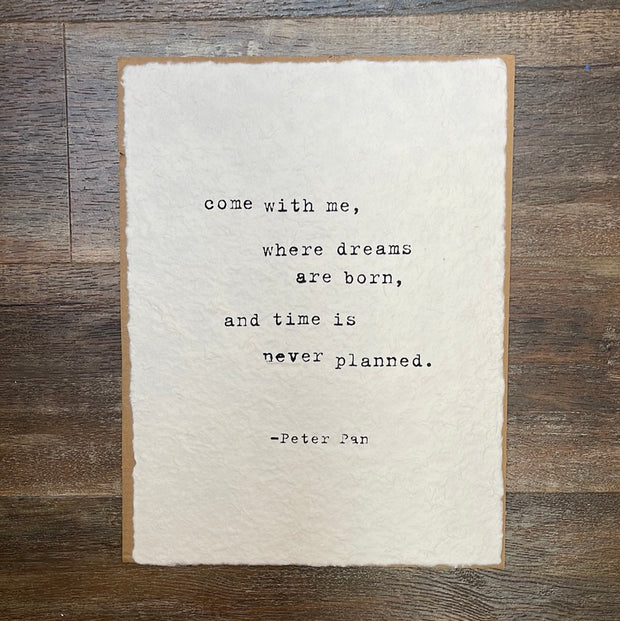 come with me,
where dreams
are born,
and time is
never planned.
-Peter Pan